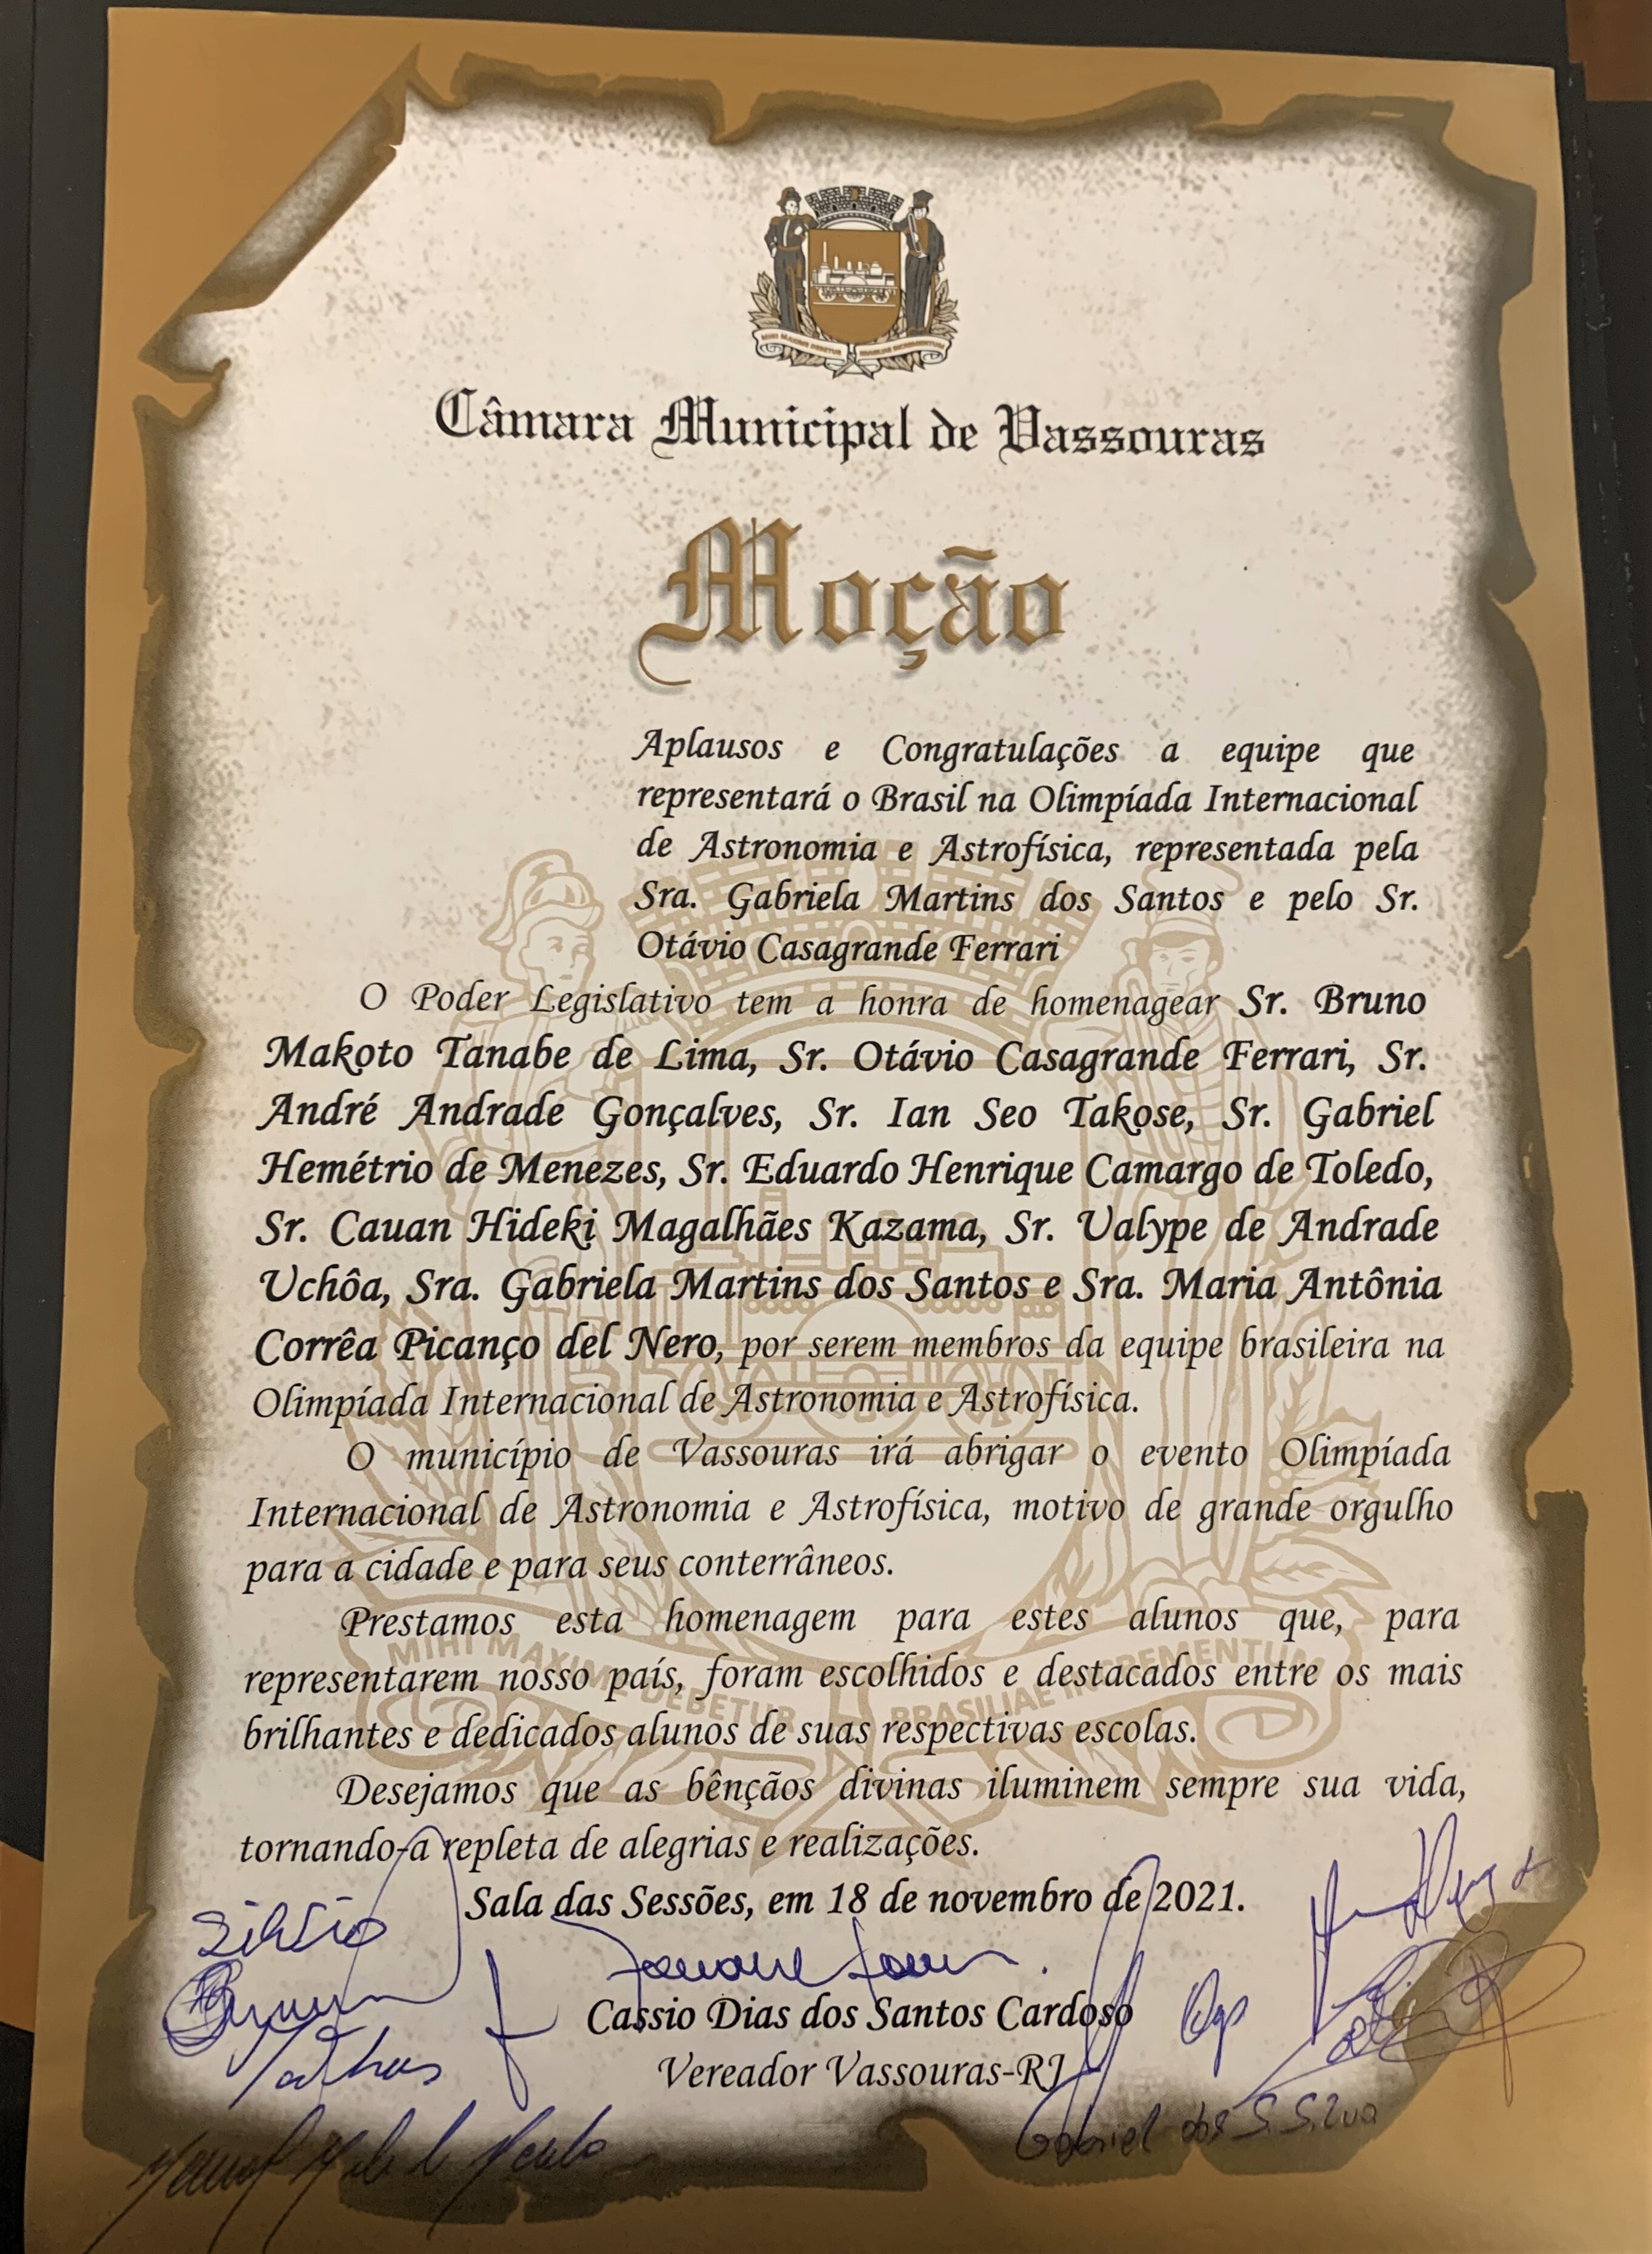 MIHI MAXIME DEBETUR BRASILIAE INCREMENTUM
Câmara Municipal de Vassouras
Moção
Aplausos e Congratulações a equipe que
representará o Brasil na Olimpíada Internacional
de Astronomia e Astrofísica, representada pela
Sra. Gabriela Martins dos Santos e pelo Sr.
Otávio Casagrande Ferrari
O Poder Legislativo tem a honra de homenagear Sr. Bruno
Makoto Tanabe de Lima, Sr. Otávio Casagrande Ferrari, Sr.
André Andrade Gonçalves, Sr. Ian Seo Takose, Sr. Gabriel
Hemétrio de Menezes, Sr. Eduardo Henrique Camargo de Toledo,
Sr. Cauan Hideki Magalhães Kazama, Sr. Ualype de Andrade
Uchôa, Sra. Gabriela Martins dos Santos e Sra. Maria Antônia
Corrêa Picanço del Nero, por serem membros da equipe brasileira na
Olimpíada Internacional de Astronomia e Astrofísica.
O município de Vassouras irá abrigar o evento Olimpíada
Internacional de Astronomia e Astrofísica, motivo de grande orgulho
para a cidade e para seus conterrâneos.
Prestamos esta homenagem para estes alunos que, para
representarem nosso país, foram escolhidos e destacados entre os mais
MIHI MAXIME DEBETUR BRASILIAE INCREMENTUM
brilhantes e dedicados alunos de suas respectivas escolas.
Desejamos que as bênçãos divinas iluminem sempre sua vida,
tornando-a repleta de alegrias e realizações.
Sala das Sessões, em 18 de novembro de 2021.
Cassio Dias dos Santos Cardoso
Vereador Vassouras-RJ
Gabriel dos S. Silva